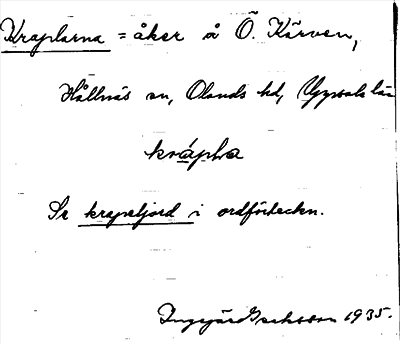 Kraplarna = åker å Ö. Kärven,
Hållnäs sn, Olands hd, Uppsala län
krápla
Se krapeljord i ordförteckn.
Ingegärd Isaksson 1935.